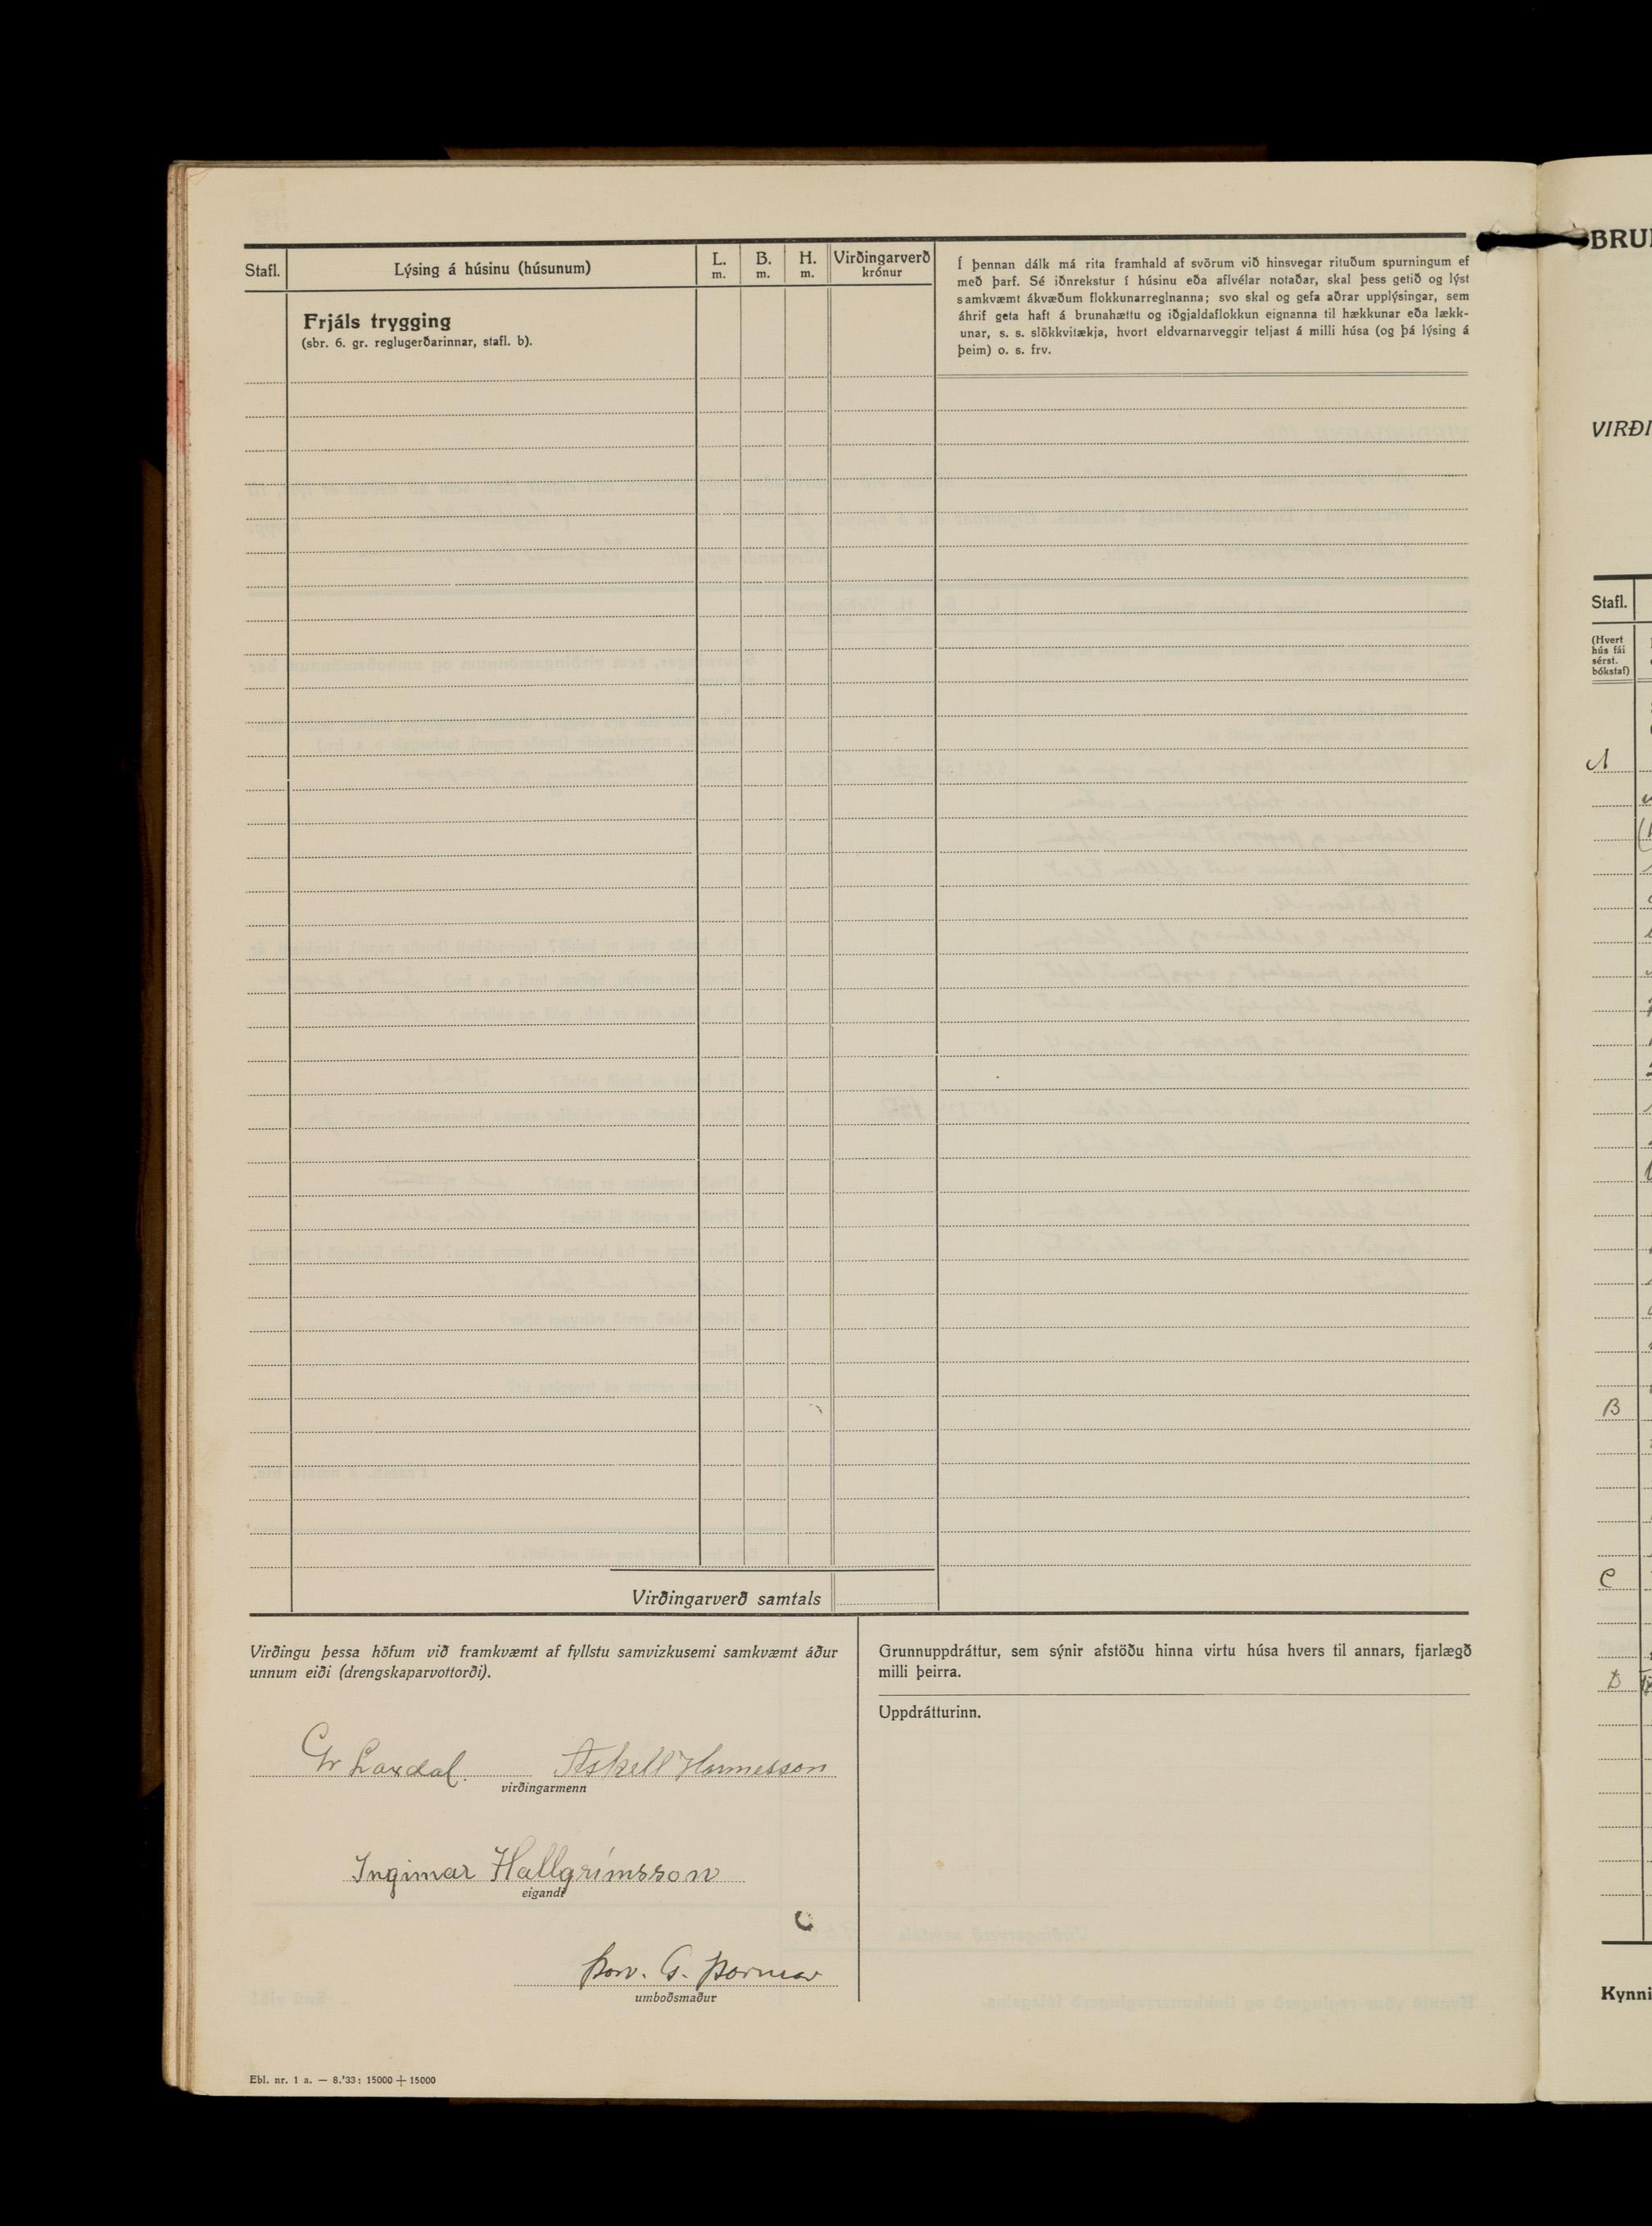 Stafl.
Lýsing á húsinu (húsunum)
L.
m.
B.
m.
H.
m.
Virðingarverð
krónur
Í þennan dálk má rita framhald af svörum við hinsvegar rituðum spurningum ef
með þarf. Sé iðnrekstur í húsinu eða aflvélar notaðar, skal þess getið og lýst
samkvæmt ákvæðum flokkunarreglnanna; svo skal og gefa aðrar upplýsingar, sem
áhrif geta haft á brunahættu og iðgjaldaflokkun eignanna til hækkunar eða lækk-
unar, s. s. slökkvitækja, hvort eldvarnarveggir teljast á milli húsa (og þá lýsing á
þeim) o. s. frv.
Frjáls trygging
(sbr. 6. gr. reglugerðarinnar, stafl. b).
Virðingarverð samtals
Virðingu þessa höfum við framkvæmt af fyllstu samvizkusemi samkvæmt áður
unnum eiði (drengskaparvottorði).
Gr Laxdal. Askell Hannesson
virðingarmenn
Ingimar Hallgrímsson
eigandi
Þorv. G. Þormar
umboðsmaður
Grunnuppdráttur, sem sýnir afstöðu hinna virtu húsa hvers til annars, fjarlægð
milli þeirra.
Uppdrátturinn.
Ebl. nr. 1 a. — 8.'33: 15000 + 15000
BRU
VIRÐI
Stafl.
(Hvert
hús fái
sérst.
bókstaf)
A
B
C
D
Kynni